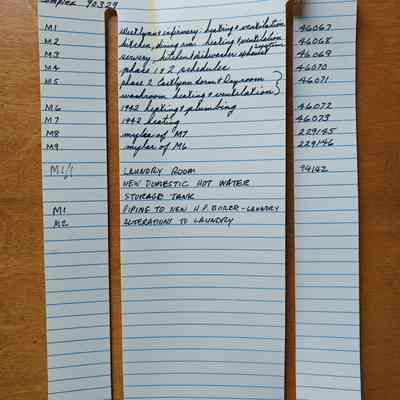 Complex 90329
M1 Westlynn & infirmary - heating & ventilation 46067
M2 kitchen, dining rm. heating & ventilation 46068
M3 servery, kitchen & dishwasher exhaust system 46069
M4 phase 1 & 2 schedules 46070
M5 phase 2 Eastlynn dorm & Dayroom 46071
washroom heating & ventilation
M6 1942 heating & plumbing 46072
M7 1942 heating 46073
M8 mylar of M7 229145
M9 mylar of M6 229146
M1/1 LAUNDRY ROOM 94142
NEW DOMESTIC HOT WATER
STORAGE TANK
M1 PIPING TO NEW H.P. BOILER - LAUNDRY
M2 ALTERATIONS TO LAUNDRY